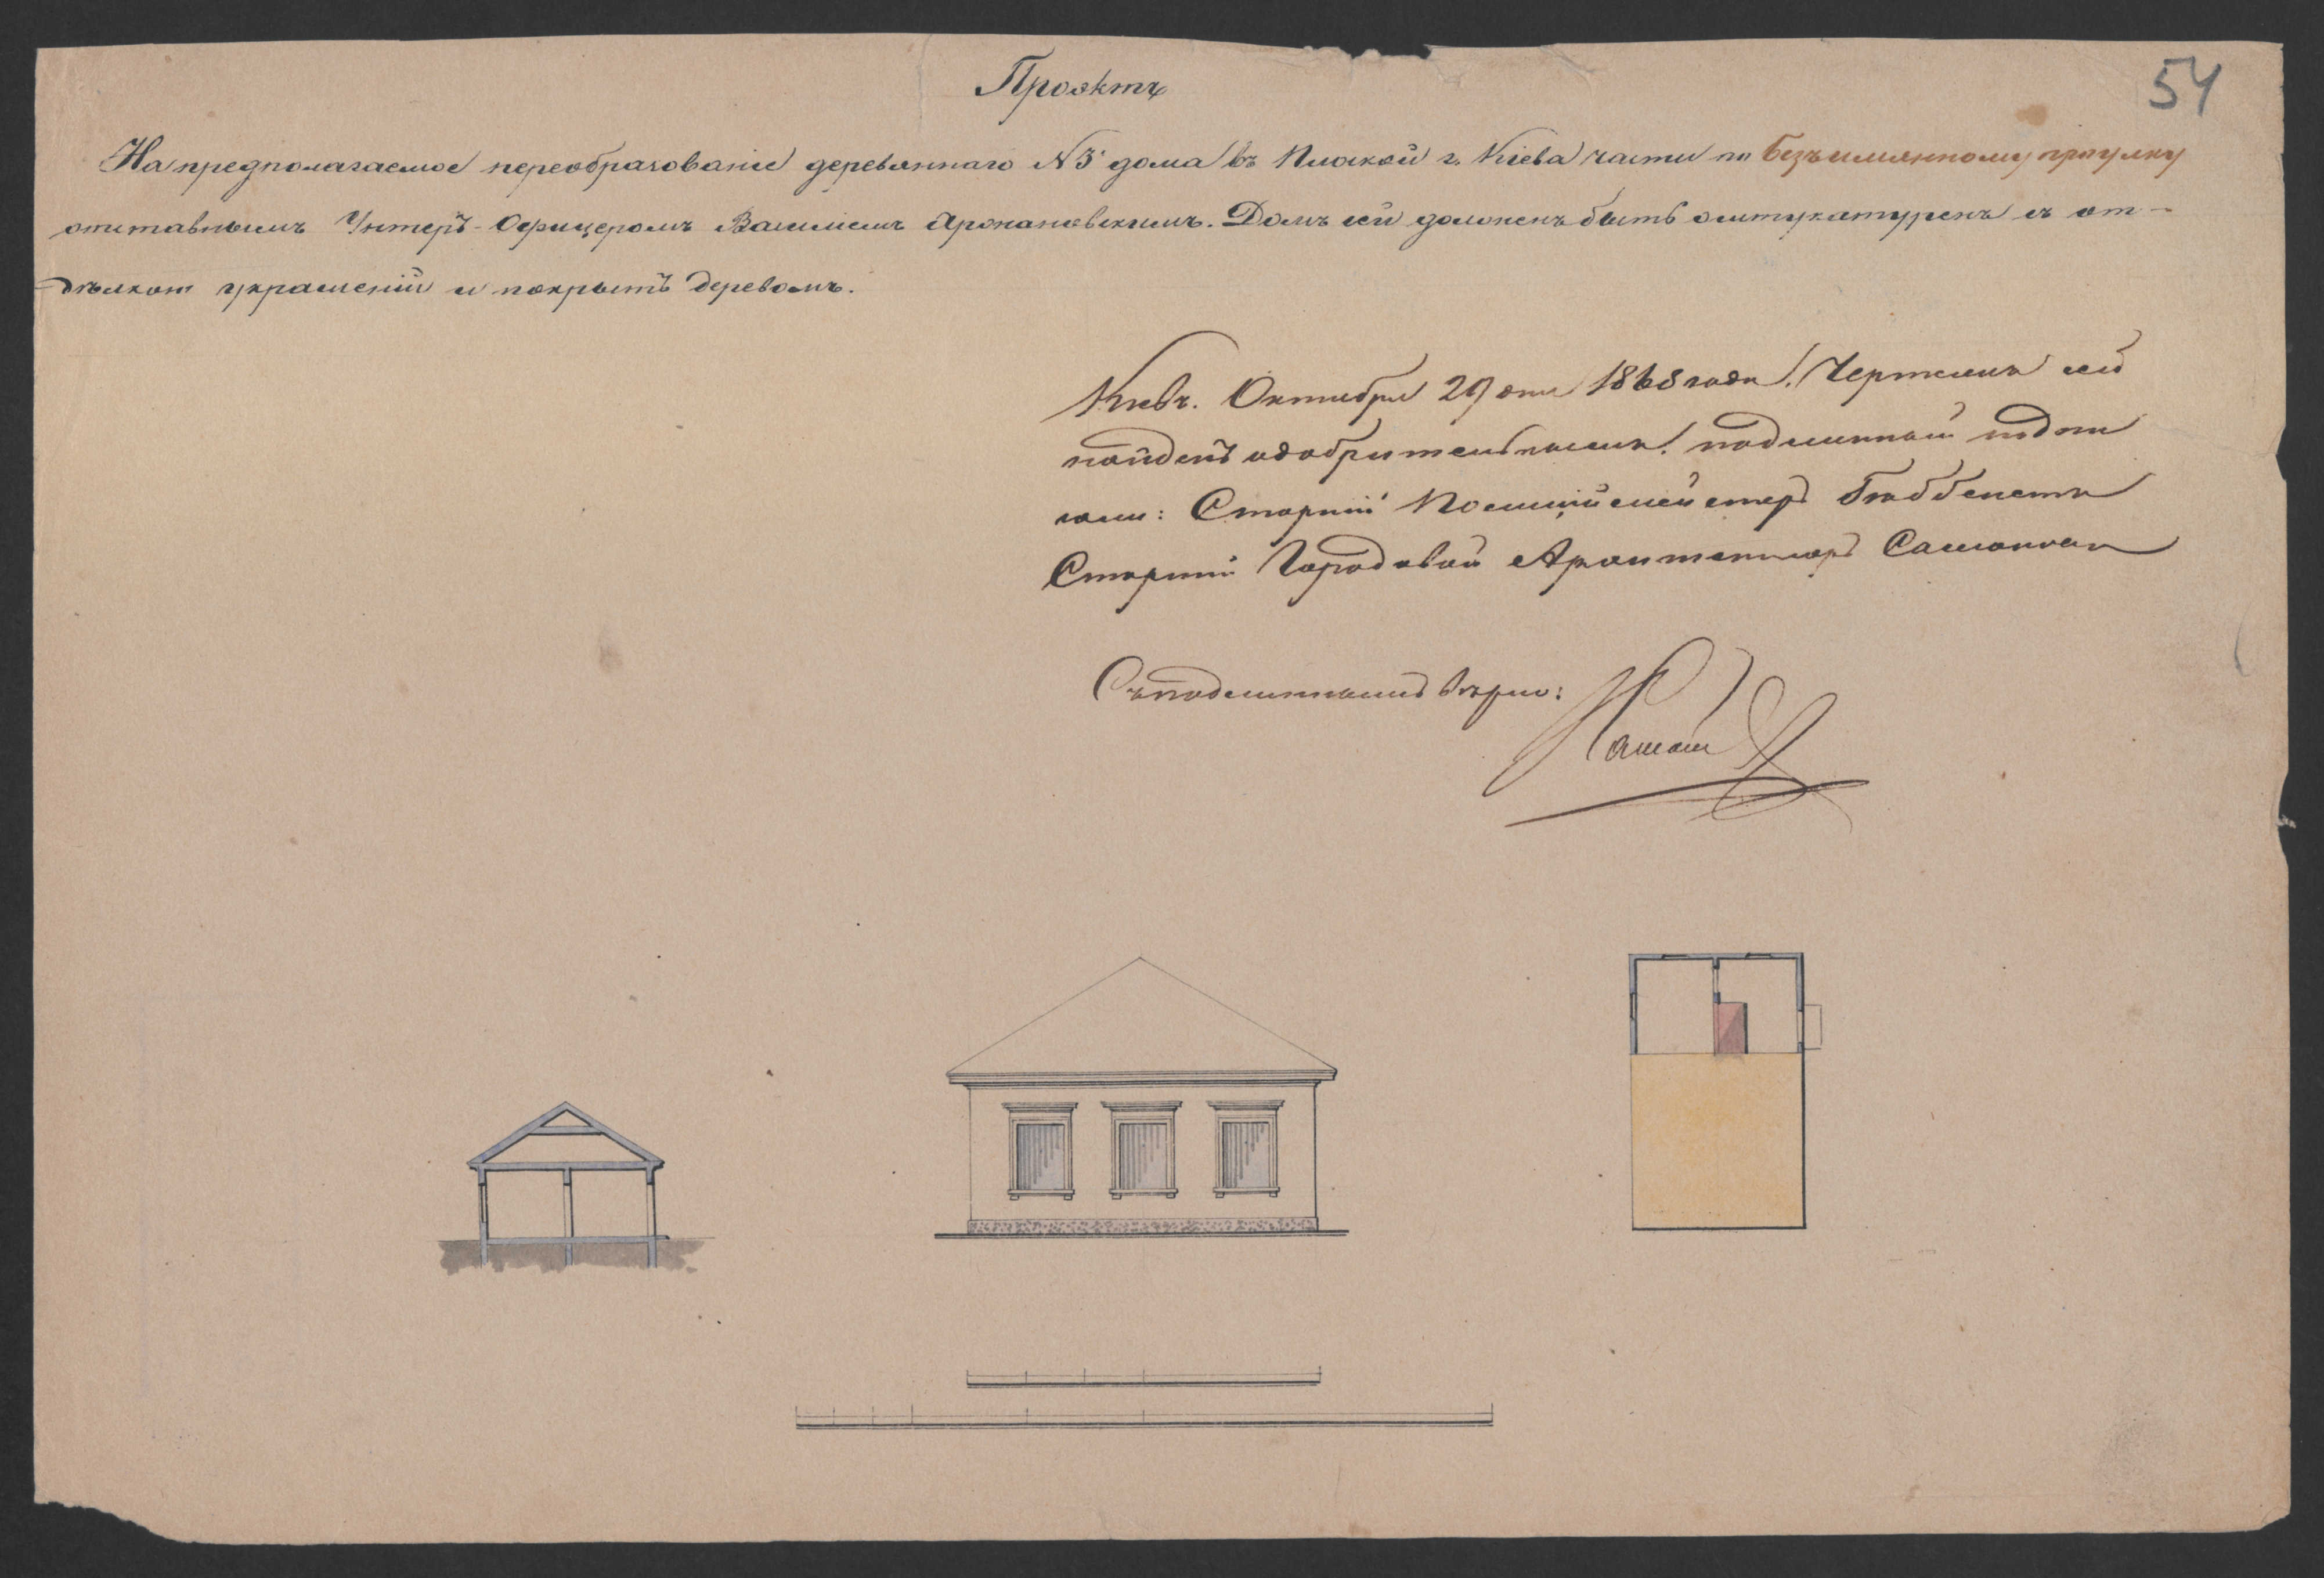 Проэктъ
54
На предполагаемое переобразованіе деревяннаго №3 дома въ Плоской г. Кіева части по Безъимянному проулку
отставнымъ Унтеръ-Офицеромъ Василіемъ. Домъ сей долженъ быть оштукатуренъ съ от-
дѣлкою украшеній и покрытъ деревомъ.
Кіевъ. Октября 29 дня 1868 года. Чертежъ сей
найденъ одобрительнымъ. подлинный подпи
сали: Старшій Полиціймейстеръ
Старшій Городовой Архитекторъ
Съ подлиннымъ вѣрно: